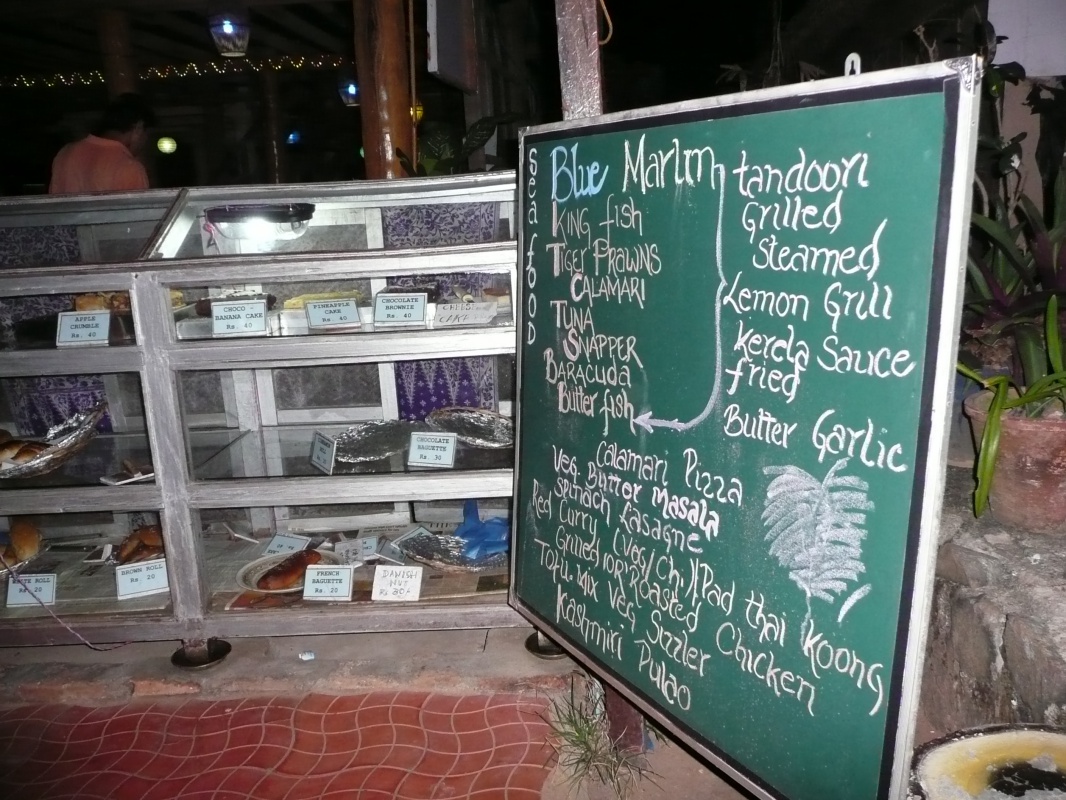 Sea food
Blue Marlin
KING fish
TIGER PRAWNS
CALAMARI
TUNA
SNAPPER
BARACUDA
Butter fish
tandoori
Grilled
steamed
Lemon Grill
Kerela Sauce
fried
Butter Garlic
Calamari Pizza
Veg. Butter masala
Spinach Lasagne
Red Curry (Veg/Ch.) Pad thai Koong
Grilled (or) Roasted Chicken
TOFU. Mix Veg Sizzler
Kashmiri Pulao
APPLE CRUMBLE
Rs. 40
CHOCO - BANANA CAKE
Rs. 40
PINEAPPLE CAKE
Rs. 40
CHOCOLATE BROWNIE
Rs. 40
CAKE
CHOCOLATE BAGUETTE
Rs. 30
WHITE ROLL
Rs. 20
BROWN ROLL
Rs. 20
FRENCH BAGUETTE
Rs. 20
DANISH
NUT
Rs 30/-